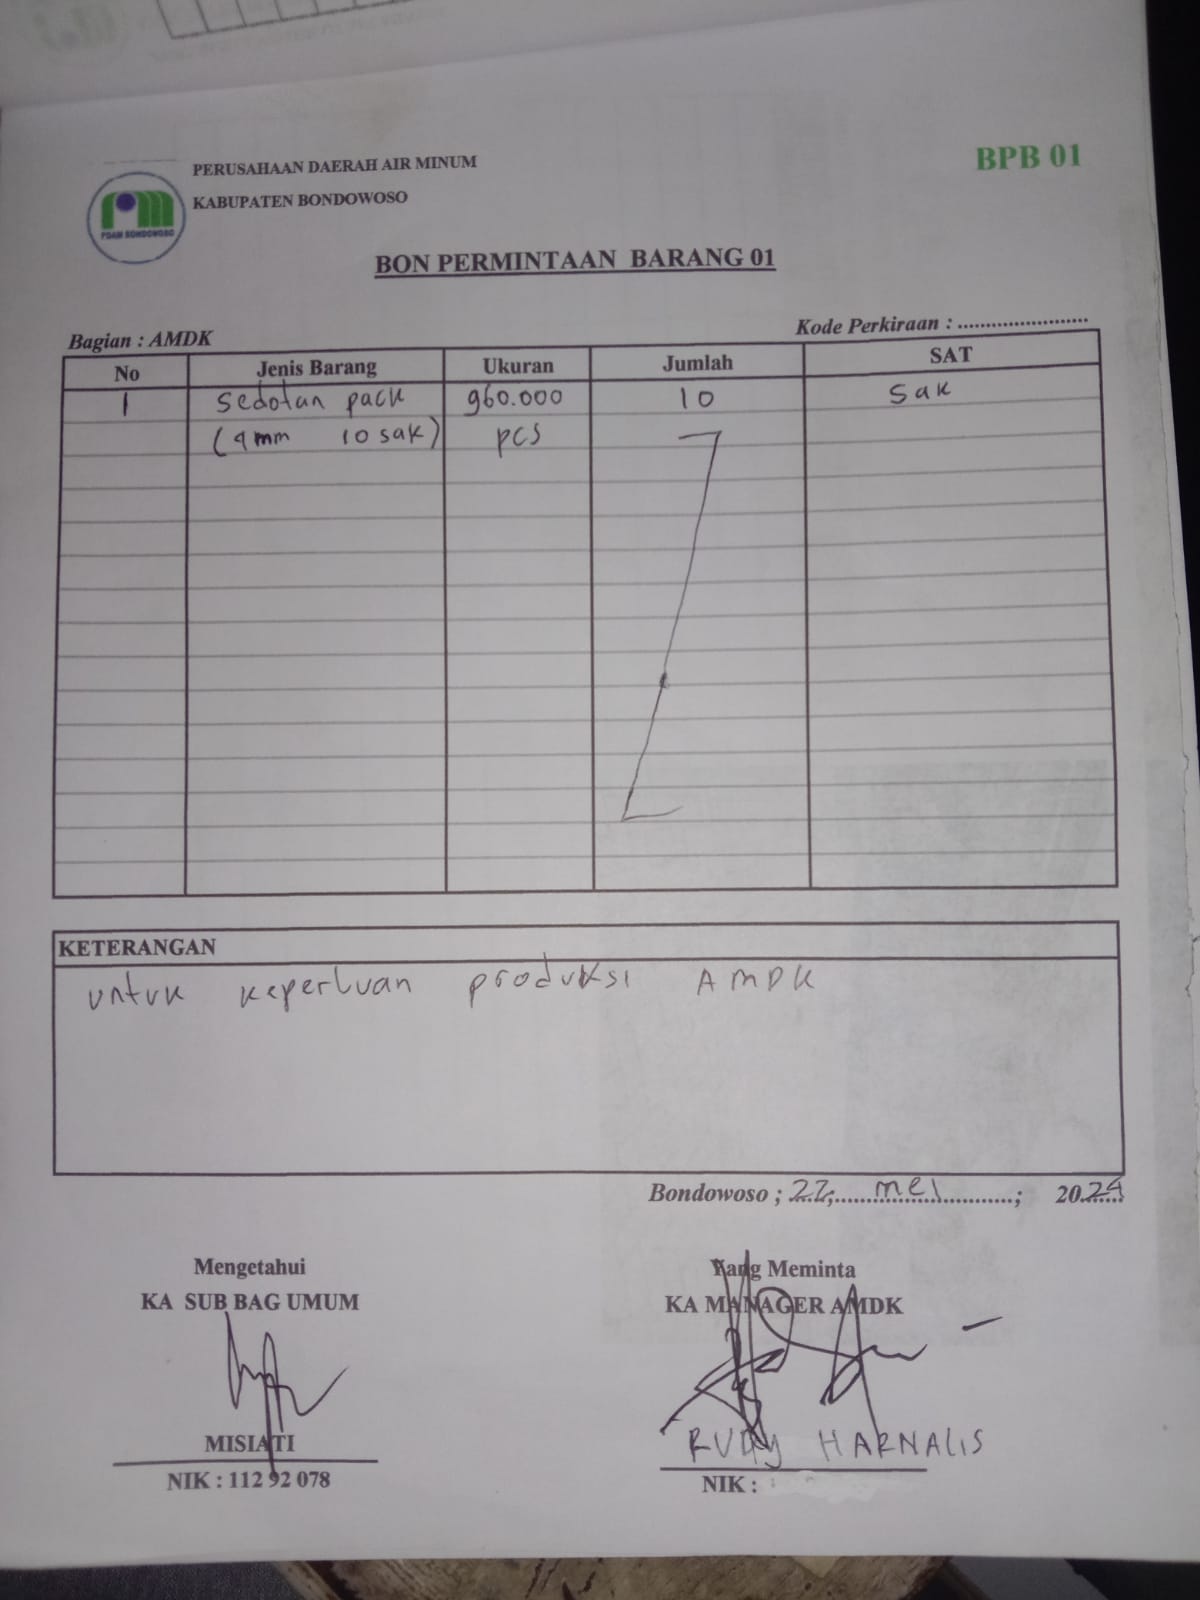 PERUSAHAAN DAERAH AIR MINUM
KABUPATEN BONDOWOSO
BPB 01
PDAM BONDOWOSO
BON PERMINTAAN BARANG 01
Bagian : AMDK
Kode Perkiraan : ........................
No Jenis Barang Ukuran Jumlah SAT
1 sedotan pack 960.000 10 sak
(4mm 10 sak) pcs
KETERANGAN
untuk keperluan produksi AMDK
Bondowoso ; 22, mei ; 2024
Mengetahui
KA SUB BAG UMUM
MISIATI
NIK : 112 92 078
Yang Meminta
KA MANAGER AMDK
RUDY HARNALIS
NIK :